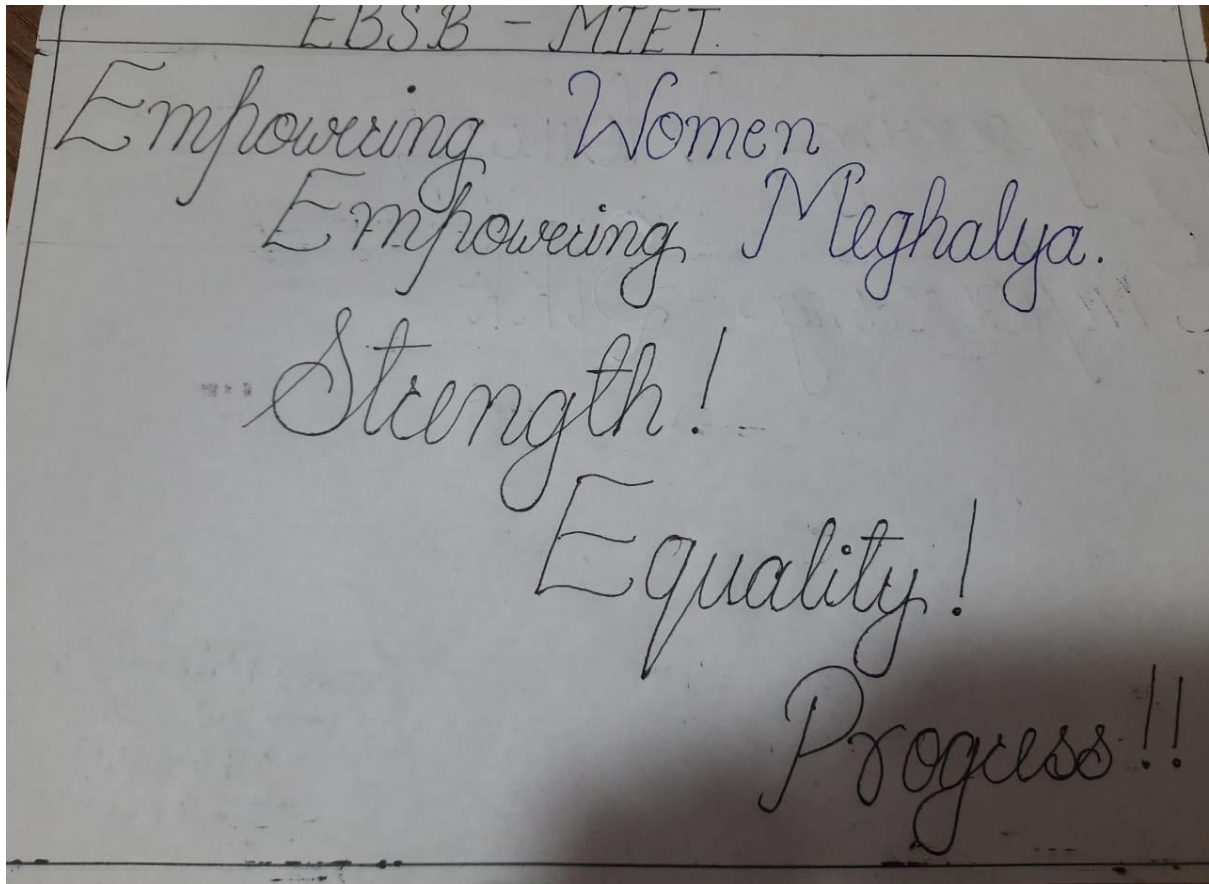 EBSB - MIET.
Empowering Women
Empowering Meghalya.
Strength!
Equality!
Progress!!